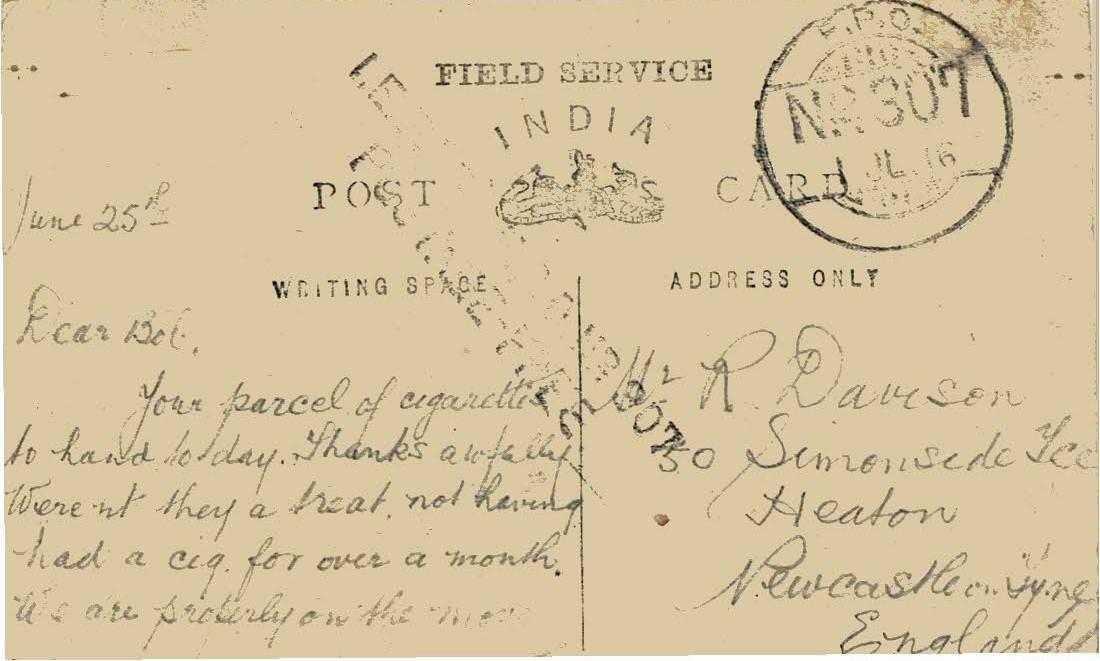 FIELD SERVICE
INDIA
POST CARD
F.P.O.
No. 307
1 JL 16
WRITING SPACE
ADDRESS ONLY
June 25th
Dear Bob,
Your parcel of cigarettes
to hand to day. Thanks awfully
Were nt they a treat, not having
had a cig. for over a month.
We are properly on the
Mr R. Davison
50 Simonside Tce
Heaton
Newcastle on Tyne
England